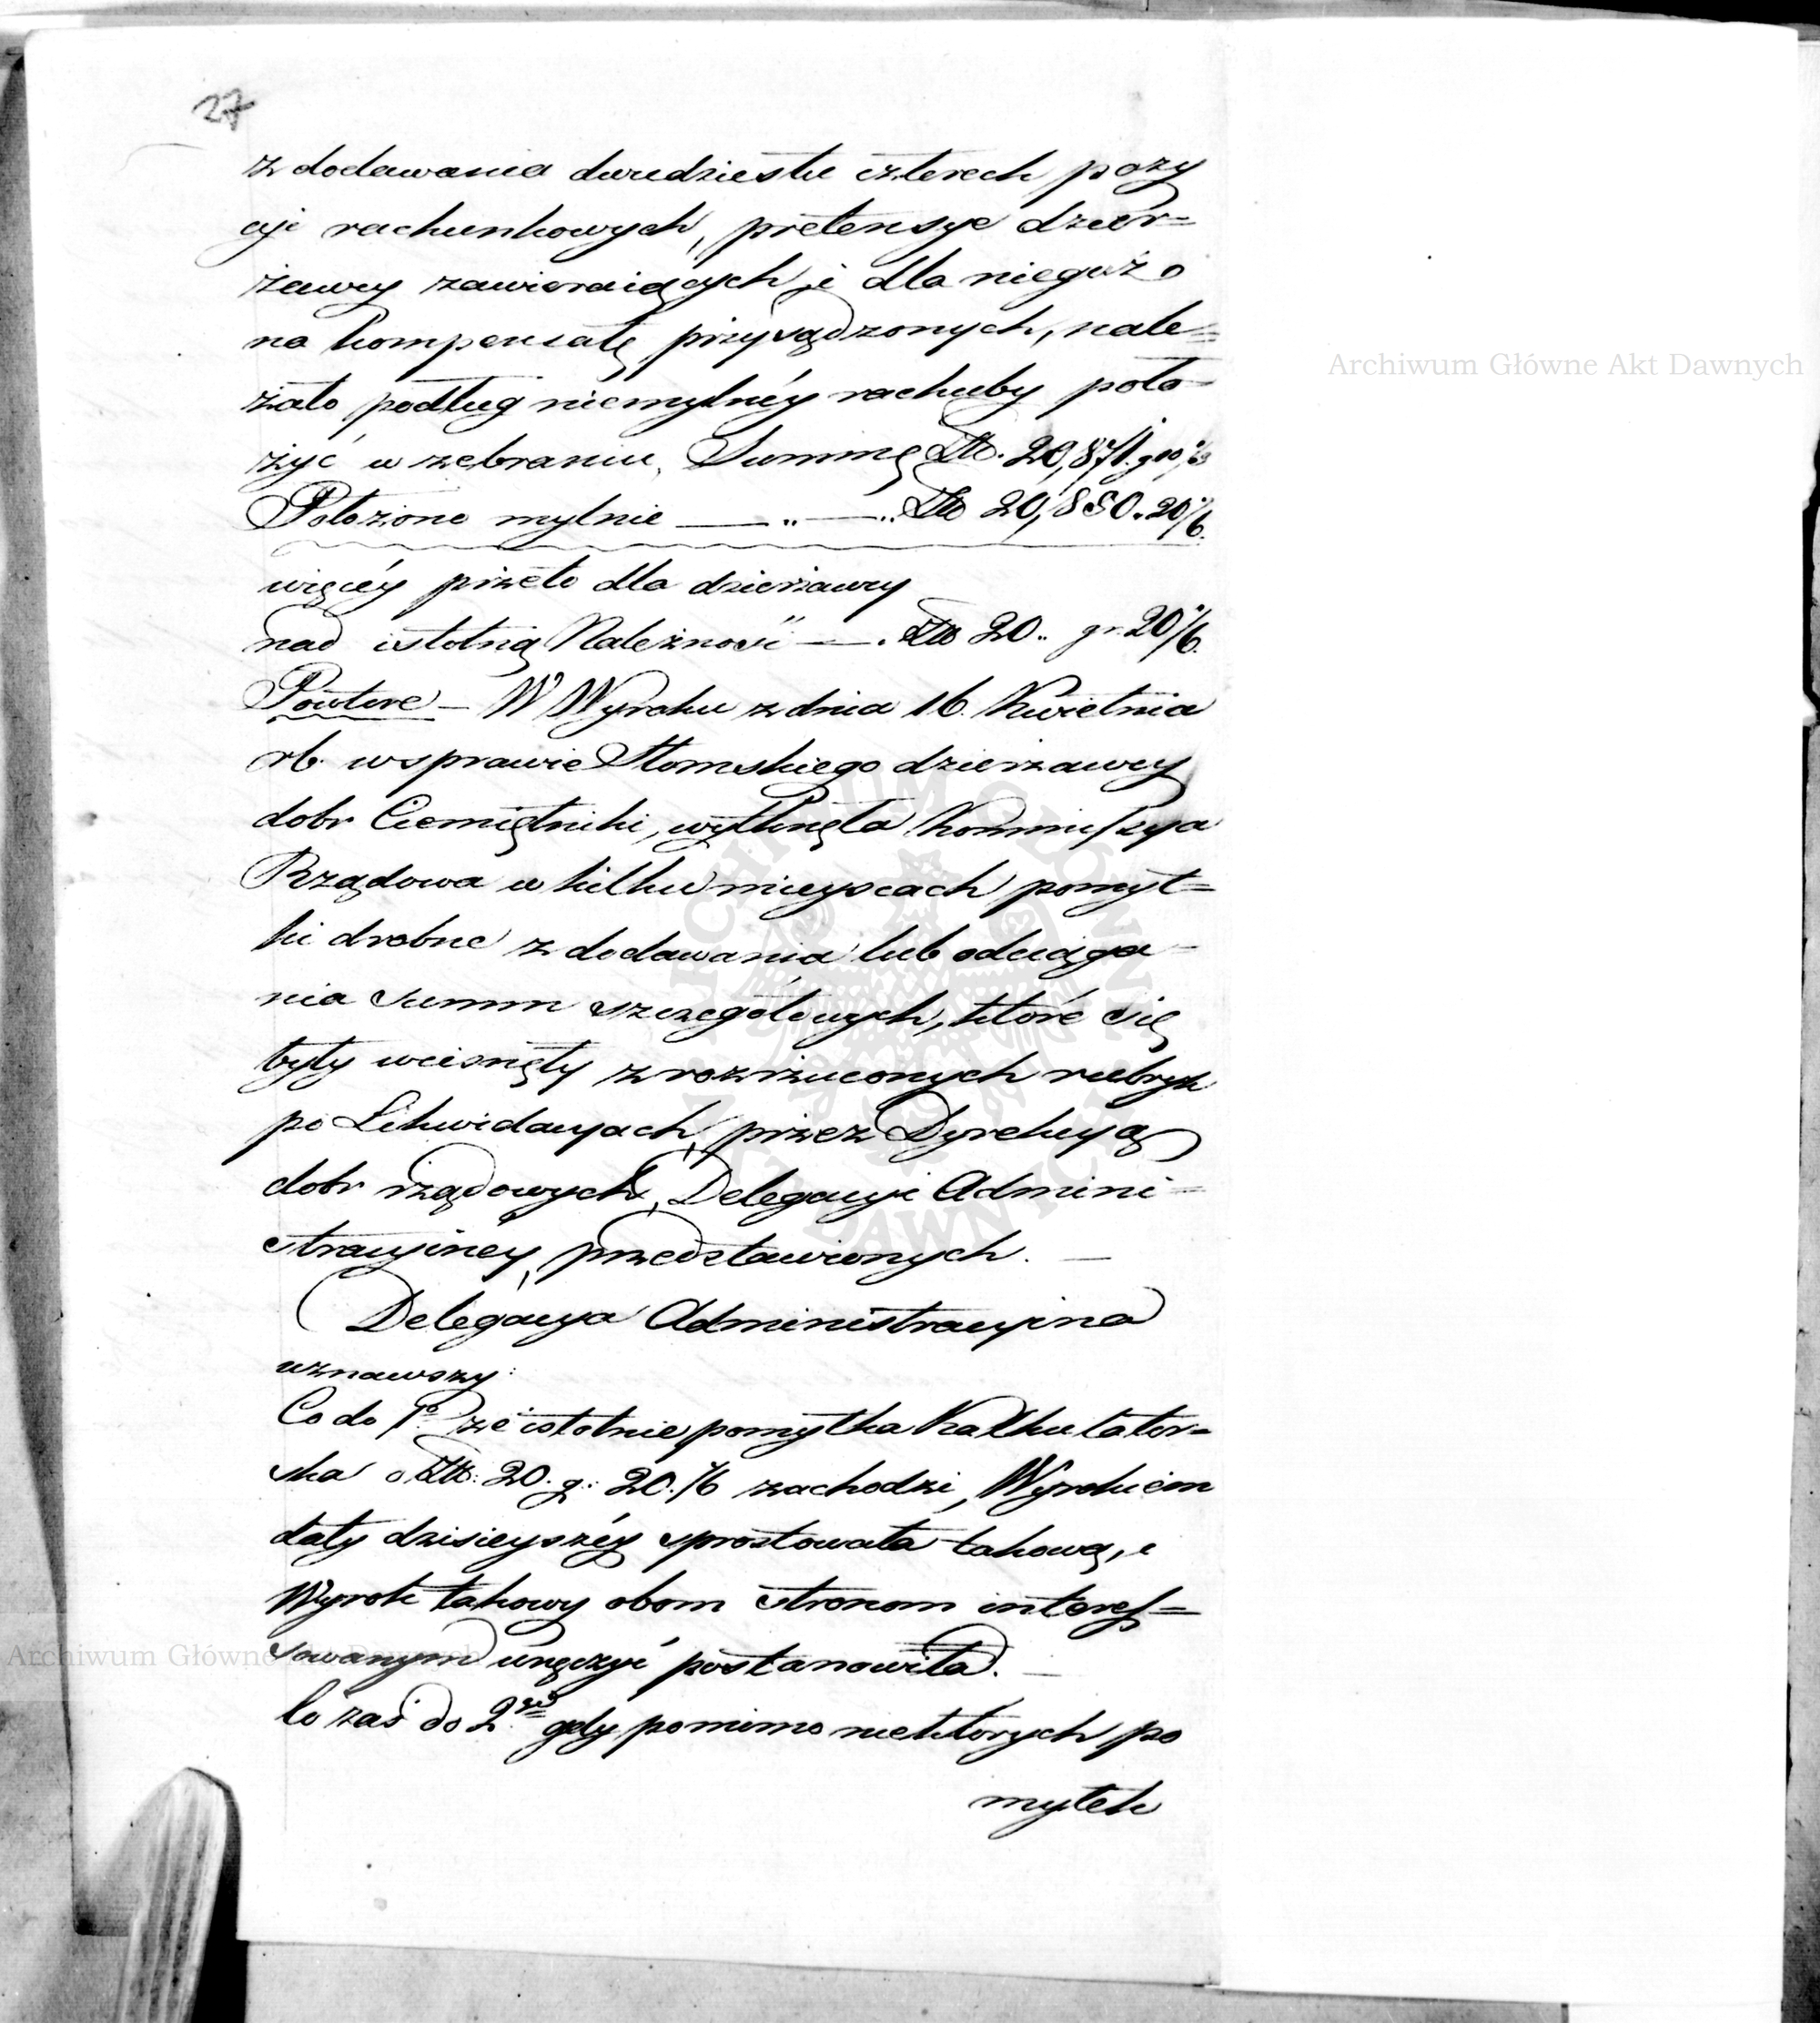 27
z dodawania dwudziestu czterech pozy
cyi rachunkowych, pretensye dzier=
żawcy zawieraiących i dla niegoż
na kompensatę przysądzonych, nale=
żało podług niemylnéy rachuby poło=
żyć w zebraniu, Summę Złt. 20,871. g
Położono mylnie — „ — „ Złt 20,850. 20 1/6.
więcéy przeto dla dzierżawcy
nad istotną Należność — . Złt 20 „ gr. 20 1/6.
Powtore — W Wyroku z dnia 16. Kwietnia
rb. w sprawie Słomskiego dzierżawcy
dobr Ciemiętniki, wytknęła Kommissya
Rządowa w kilku mieyscach pomył=
ki drobne z dodawania lub odciąga=
nia summ szczegółowych, które się
były wcisnęły z rozrzuconych rubryk
po Likwidacyach, przez Dyrekcyą
dobr rządowych, Delegacyi Admini=
stracyinéy przedstawionych. —
Delegacya Administracyina
uznawszy:
Co do 1o że istotnie pomyłka Kalkulator=
ska o Złt: 20. g: 20. 1/6 zachodzi, Wyrokiem
daty dzisieyszéy sprostowała takową, i
Wyrok takowy obom stronom interes=
sowanym wręczyć postanowiła. —
Co zaś do 2go gdy pomimo niektórych po
myłek
Archiwum Główne Akt Dawnych
Archiwum Główne Akt Dawnych
ARCHIWUM GŁÓWNE AKT DAWNYCH